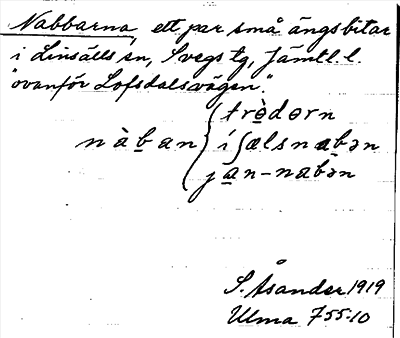 Nabbarna, ett par små ängsbitar
i Linsälls sn, Svegs tg, Jämtl. l.
"ovanför Lofsdalsvägen."
trèdərn
nàban { í ʃælsnabən
jan-nabən
S. Åsander 1919
Ulma 755:10